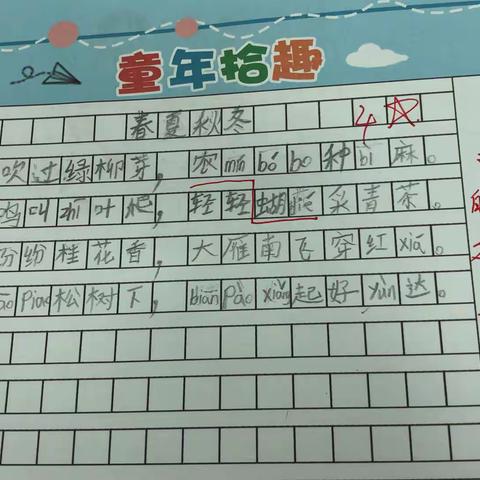 童年拾趣
春夏秋冬 4
吹过绿柳芽，农mín bó bo种bì麻。
鸣叫zhī叶爬，轻轻蝴蝶采青茶。
纷纷桂花香，大雁南飞穿红xiá。
piāo松树下，biān pào xiǎng起好yùn达。